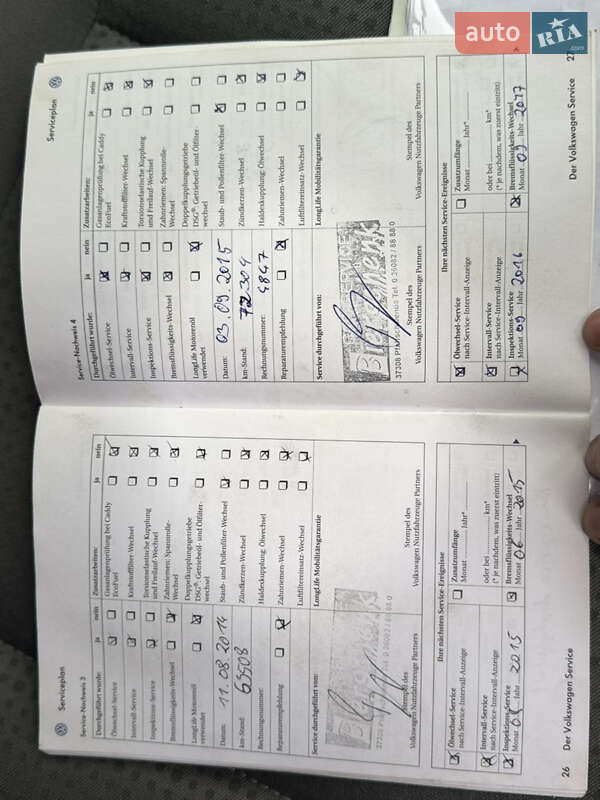 auto RIA.com
Serviceplan
Service-Nachweis 3
Durchgeführt wurde: ja nein
Ölwechsel-Service
Intervall-Service
Inspektions-Service
Bremsflüssigkeits-Wechsel
LongLife Motorenöl
verwendet
Datum: 11.08.2014
km-Stand: 69508
Rechnungsnummer:
Reparaturempfehlung
Service durchgeführt von:
Stempel des
Volkswagen Nutzfahrzeuge Partners
Zusatzarbeiten: ja nein
Gasanlagenprüfung bei Caddy
EcoFuel
Kraftstofffilter-Wechsel
Torsionselastische Kupplung
und Freilauf-Wechsel
Zahnriemen: Spannrolle-
Wechsel
Doppelkupplungsgetriebe
DSG®: Getriebeöl- und Ölfilter-
wechsel
Staub- und Pollenfilter-Wechsel
Zündkerzen-Wechsel
Haldexkupplung: Ölwechsel
Zahnriemen-Wechsel
Luftfiltereinsatz-Wechsel
LongLife Mobilitätsgarantie
Stempel des
Volkswagen Nutzfahrzeuge Partners
Ihre nächsten Service-Ereignisse
Ölwechsel-Service
nach Service-Intervall-Anzeige
Intervall-Service
nach Service-Intervall-Anzeige
Inspektions-Service
Monat Jahr 2015
Zusatzumfänge
Monat Jahr*
oder bei km*
(* je nachdem, was zuerst eintritt)
Bremsflüssigkeits-Wechsel
Monat 06 Jahr 2015
26 Der Volkswagen Service
Serviceplan
Service-Nachweis 4
Durchgeführt wurde: ja nein
Ölwechsel-Service
Intervall-Service
Inspektions-Service
Bremsflüssigkeits-Wechsel
LongLife Motorenöl
verwendet
Datum: 03.09.2015
km-Stand: 72304
Rechnungsnummer: 4847
Reparaturempfehlung
Service durchgeführt von:
Tel. 0 36082 / 88 88 0
Stempel des
Volkswagen Nutzfahrzeuge Partners
Zusatzarbeiten: ja nein
Gasanlagenprüfung bei Caddy
EcoFuel
Kraftstofffilter-Wechsel
Torsionselastische Kupplung
und Freilauf-Wechsel
Zahnriemen: Spannrolle-
Wechsel
Doppelkupplungsgetriebe
DSG®: Getriebeöl- und Ölfilter-
wechsel
Staub- und Pollenfilter-Wechsel
Zündkerzen-Wechsel
Haldexkupplung: Ölwechsel
Zahnriemen-Wechsel
Luftfiltereinsatz-Wechsel
LongLife Mobilitätsgarantie
Stempel des
Volkswagen Nutzfahrzeuge Partners
Ihre nächsten Service-Ereignisse
Ölwechsel-Service
nach Service-Intervall-Anzeige
Intervall-Service
nach Service-Intervall-Anzeige
Inspektions-Service
Monat 09 Jahr 2016
Zusatzumfänge
Monat Jahr*
oder bei km*
(* je nachdem, was zuerst eintritt)
Bremsflüssigkeits-Wechsel
Monat 09 Jahr 2017
Der Volkswagen Service 27